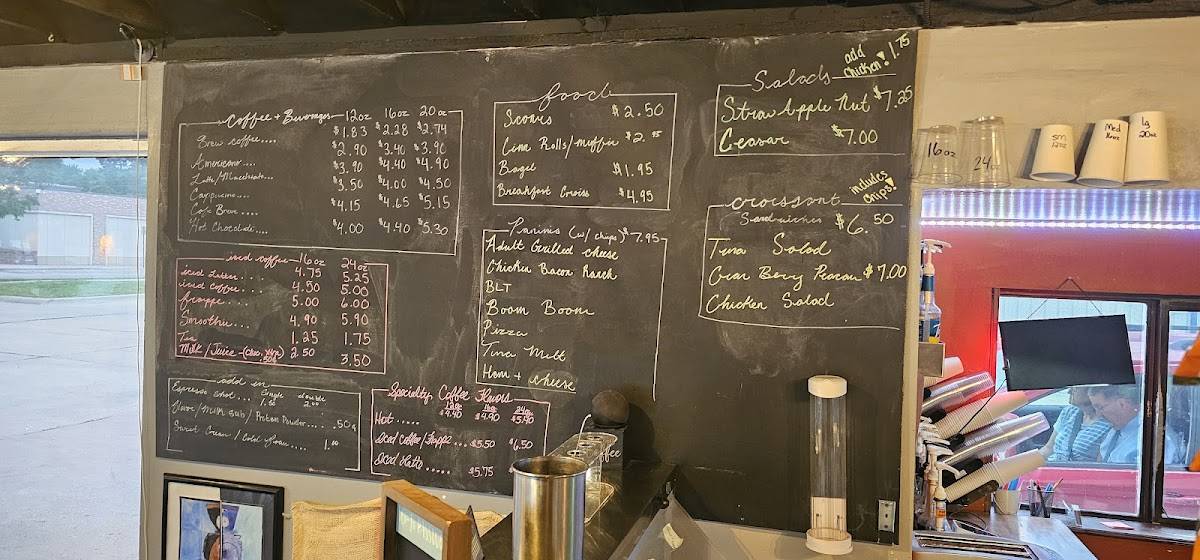 Coffee + Beverages 12oz 16oz 20oz
Brew coffee.... $1.83 $2.28 $2.74
Americano.... $2.90 $3.40 $3.90
Latte/Macchiato... $3.90 $4.40 $4.90
Cappucino.... $3.50 $4.00 $4.50
Cafe Breve.... $4.15 $4.65 $5.15
Hot Chocolate.... $4.00 $4.40 $5.30
iced coffee 16oz 24oz
iced Latte.... 4.75 5.25
iced coffee.... 4.50 5.00
frappe.... 5.00 6.00
Smoothie... 4.90 5.90
Tea 1.25 1.75
Milk/Juice 2.50 3.50
add in
Espresso Shot... Single double
1.50 2.00
Flavor/Milk Sub/Protein Powder.... .50
Sweet Cream/Cold Foam.... 1.00
Specialty Coffee Flavors
12oz 16oz 24oz
Hot..... $4.40 $4.90 $5.40
Iced Coffee/Frappe... $5.50 $6.50
Iced Latte..... $5.75
food
Scones $2.50
Cina Rolls/muffin $2.95
Bagel $1.95
Breakfast Croiss $4.95
Paninis (w/ chips) $7.95
Adult Grilled cheese
Chicken Bacon Ranch
BLT
Boom Boom
Pizza
Tuna Melt
Ham + cheese
Salads
add Chicken! 1.75
Straw Apple Nut $7.25
Ceasar $7.00
croissant
Sandwiches $6.50
includes chips!
Tuna Salad
Cran Berry Pecan $7.00
Chicken Salad
16oz
24oz
Sm 12oz
Med 16oz
lg 20oz